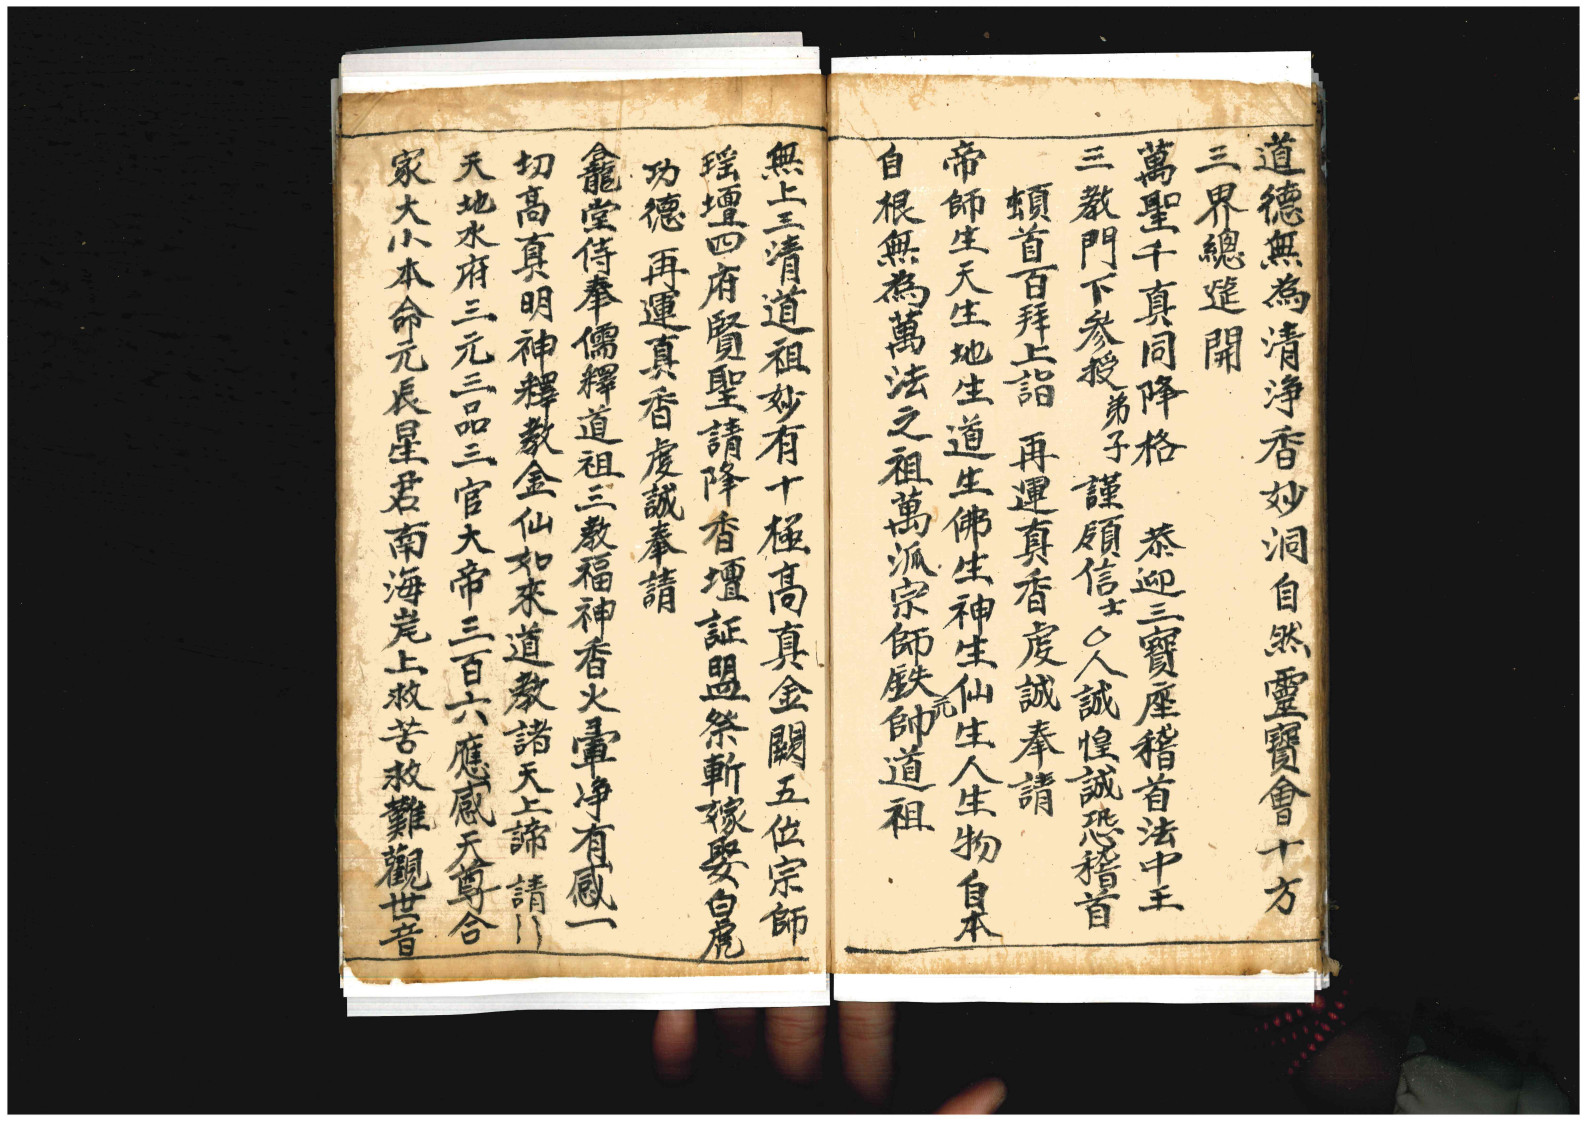 道德無為清淨香妙洞自然靈寶會十方
三界總筵開
萬聖千真同降格 恭迎三寶座稽首法中王
三教門下參授弟子謹領信士 人誠惶誠恐稽首
頓首百拜上詣 再運真香虔誠奉請
帝師生天生地生道生佛生神生仙生人生物自本
自根無為萬法之祖萬派宗師鉄元帥道祖
無上三清道祖妙有十極高真金闕五位宗師
瑶壇四府賢聖請降香壇証盟祭斬嫁娶白虎
功德 再運真香虔誠奉請
龕堂侍奉儒釋道祖三教福神香火葷净有感一
切高真明神釋教金仙如來道教諸天上諦 請
天地水府三元三品三官大帝三百六應感天尊合
家大小本命元辰星君南海岸上救苦救難觀世音